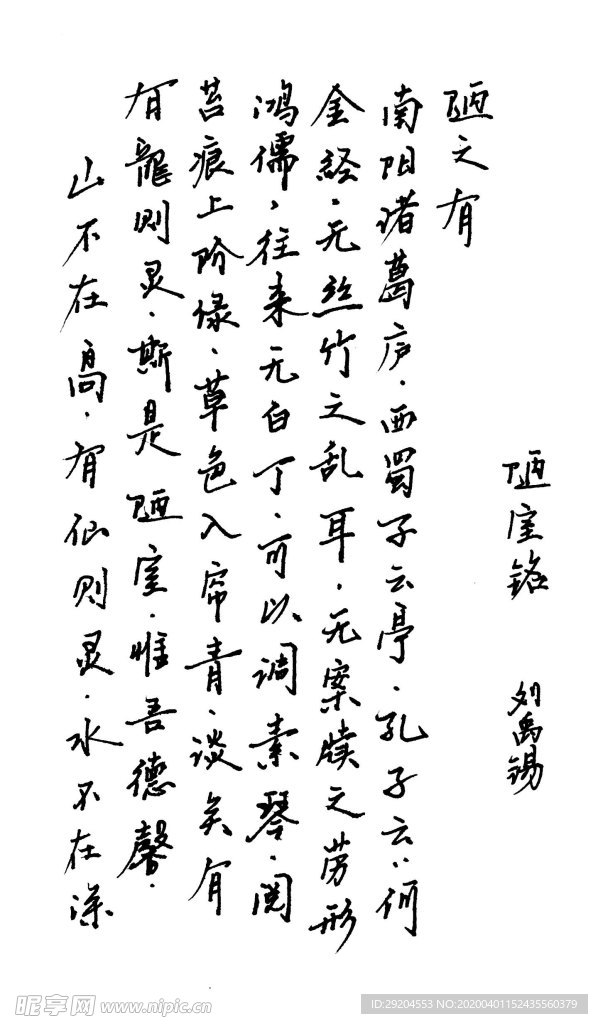 陋室铭
刘禹锡
山不在高.有仙则灵.水不在深
有龍则灵.斯是陋室.惟吾德馨.
苔痕上阶绿.草色入帘青.谈笑有
鸿儒,往来无白丁.可以调素琴.阅
金経.无絲竹之乱耳.无案牍之劳形
南阳诸葛庐.西蜀子云亭.孔子云:何
陋之有
昵享网 www.nipic.cn
ID:29204553 NO:20200401152435560379